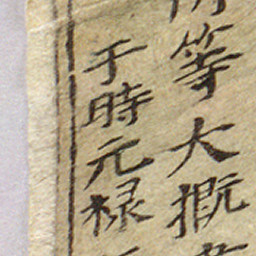 等大概
于時元禄